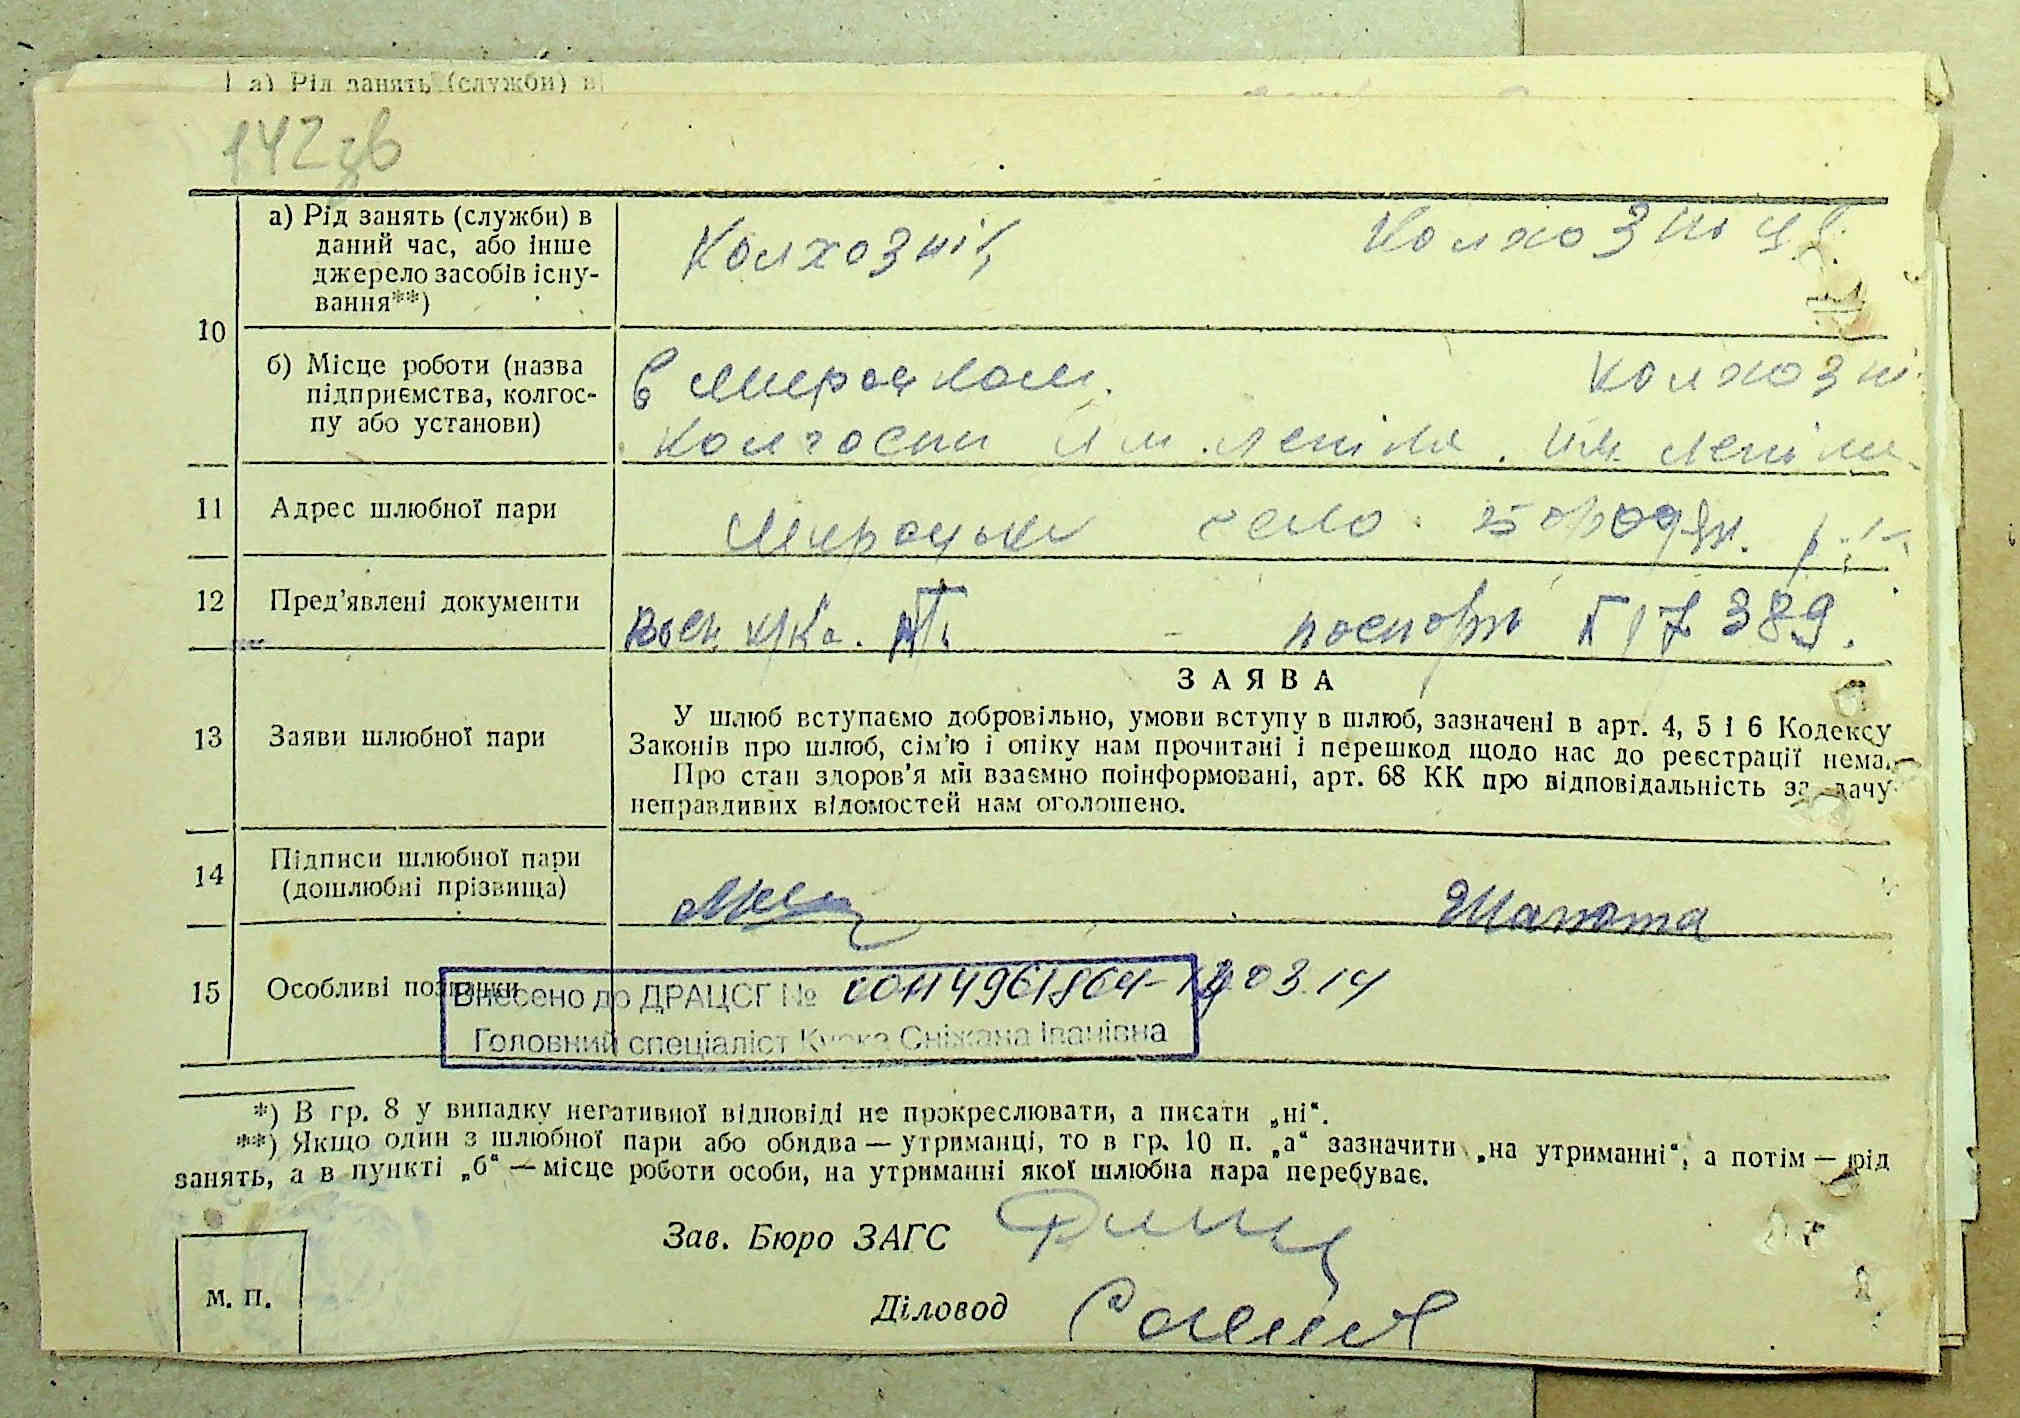 а) Рід занять (служби) в
142зв
10
а) Рід занять (служби) в
даний час, або інше
джерело засобів існу-
вання**)
Колхознік
Колхозниц
б) Місце роботи (назва
підприємства, колгос-
пу або установи)
в Мироцком.
колхозні
колгоспи им. леніна. им. леніна
11 Адрес шлюбної пари
Мироцьке село Бородян. р
12 Пред'явлені документи
воен. паспорт 17389.
13 Заяви шлюбної пари
ЗАЯВА
У шлюб вступаємо добровільно, умови вступу в шлюб, зазначені в арт. 4, 5 і 6 Кодексу
Законів про шлюб, сім'ю і опіку нам прочитані і перешкод щодо нас до реєстрації нема.
Про стан здоров'я ми взаємно поінформовані, арт. 68 КК про відповідальність за дачу
неправдивих відомостей нам оголошено.
14 Підписи шлюбної пари
(дошлюбні прізвища)
Шапота
15 Особливі позначки
Внесено до ДРАЦСГ № 00114961864- 03.14
Головний спеціаліст Сніжана Іванівна
*) В гр. 8 у випадку негативної відповіді не прокреслювати, а писати „ні“.
**) Якщо один з шлюбної пари або обидва — утриманці, то в гр. 10 п. „а“ зазначити „на утриманні“, а потім — рід
занять, а в пункті „б“ — місце роботи особи, на утриманні якої шлюбна пара перебуває.
Зав. Бюро ЗАГС
Діловод
м. п.